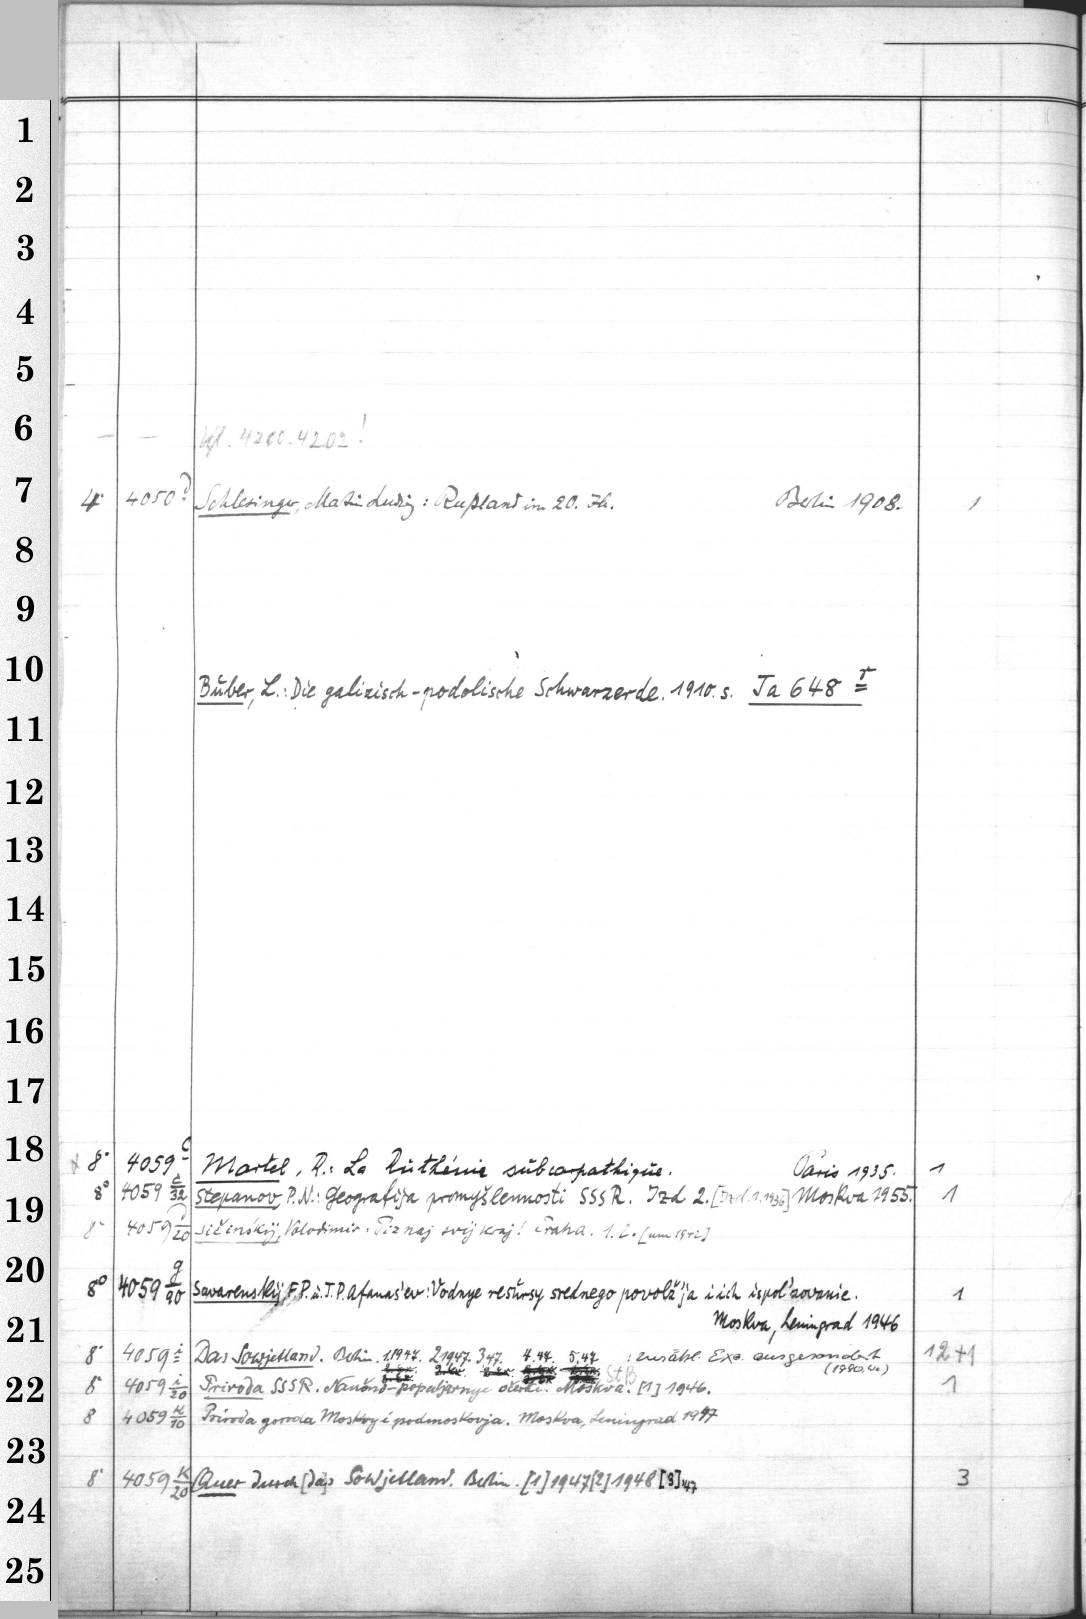 1
2
3
4
5
6
Vgl. 4200.4202!
7
4° 4050 d Schlesinger, Martin Ludwig: Rußland im 20. Jh. Berlin 1908. 1
8
9
10
Buber, L.: Die galizisch-podolische Schwarzerde. 1910. s. Ja 648 r
11
12
13
14
15
16
17
18
8° 4059 c Martel, R.: La Ruthénie subcarpathique. Paris 1935. 1
8° 4059 c/32 Stepanov, P.N.: Geografija promyšlennosti SSSR. Izd 2. [Izd. 1. 1936] Moskva 1955. 1
19
8° 4059 d/20 Sičinśkij, Volodimir: Piznaj svij kraj! Praha. 1.2. [um 1942]
20
8° 4059 g/90 Savarenskij, F.P. u. I.P. Afanaś'ev: Vodnye resursy srednego povolž'ja i ich ispol'zovanie. 1
Moskva, Leningrad 1946
21
8° 4059 i Das Sowjetland. Berlin. 1.1947. 2 1947. 3 47. 4.47. 5.47 : zusätzl. Exe. ausgesondert 12+1
StB
22
8° 4059 i/20 Priroda SSSR. Naučno-populjarnye očerki. Moskva. [1] 1946. 1
8 4059 k/10 Priroda goroda Moskvy i podmoskovja. Moskva, Leningrad 1947
23
8° 4059 k/20 Quer durch [das] Sowjetland. Berlin. [1] 1947 [2] 1948 [3] 47 3
24
25